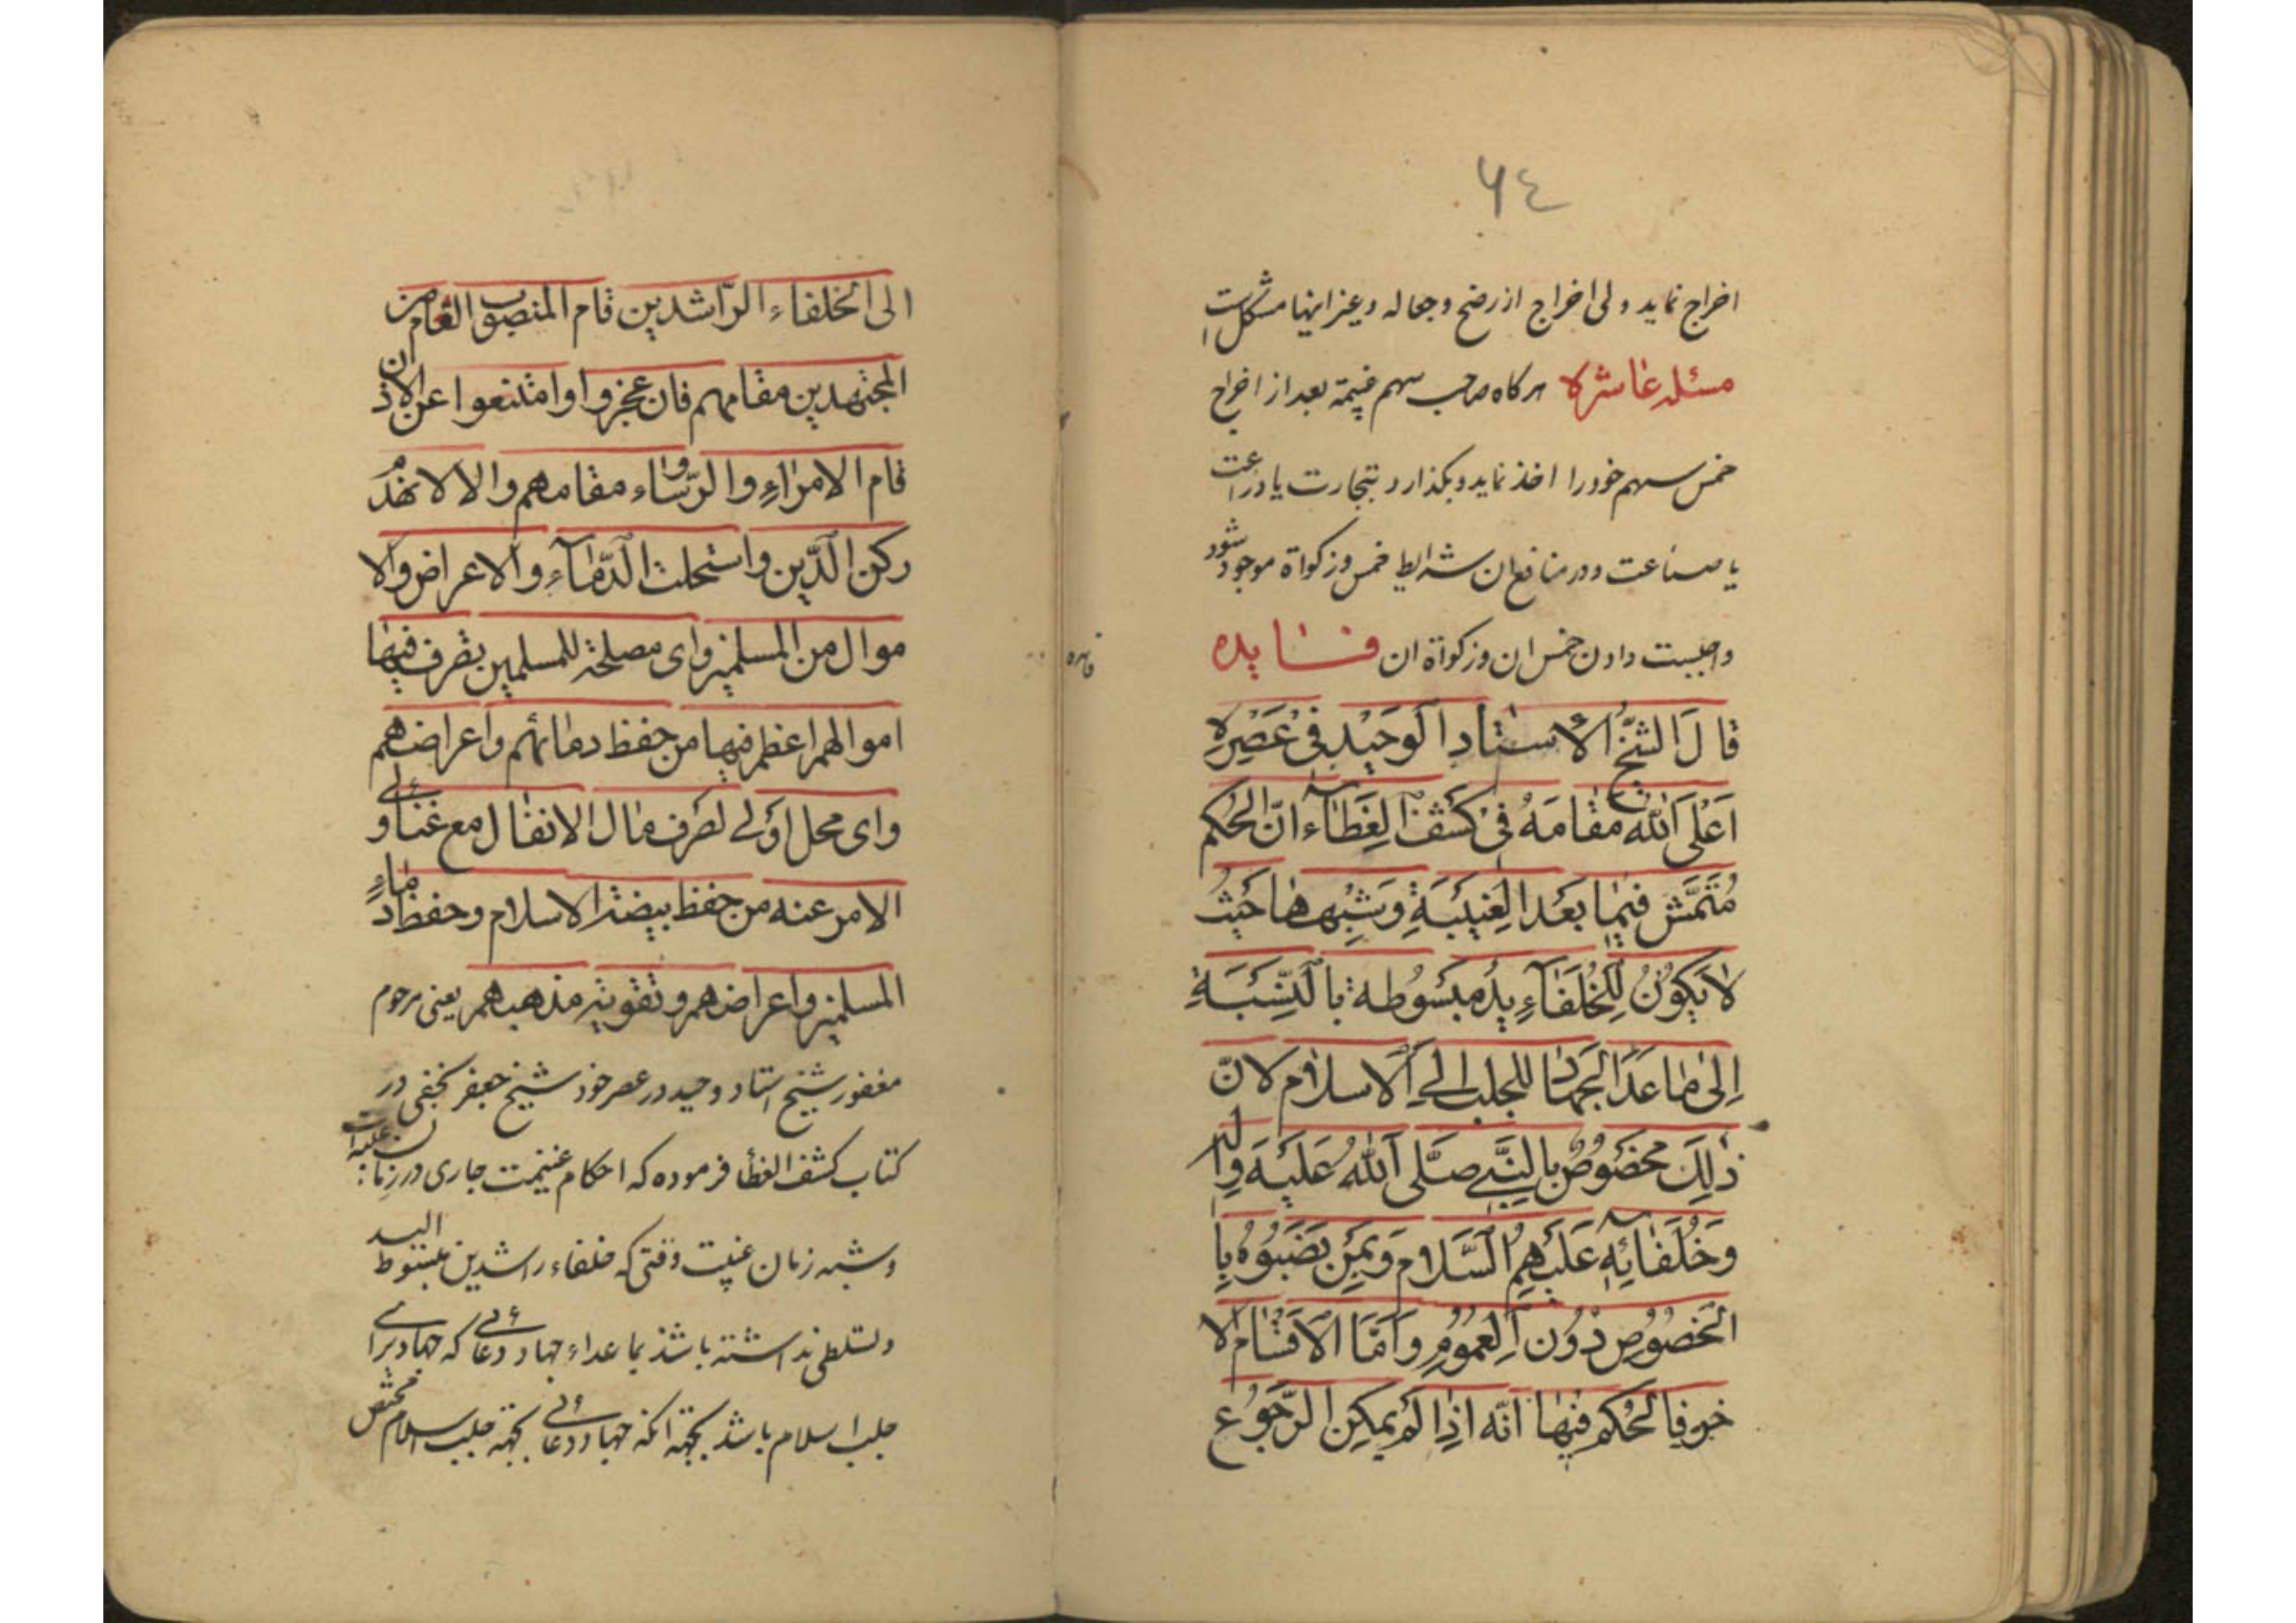 ٦٤
اخراج نماید ولی اخراج از رضخ وجعاله وغیر اینها مشکل است
مسئله عاشره هر کاه صاحب سهم غنیمة بعد از اخراج
خمس سهم خود را اخذ نماید وبکذارد بتجارت یا زراعت
یا صناعت ودر منافع ان شرایط خمس وزکواة موجود شود
واجبست دادن خمس ان وزکواة ان فایده
قَالَ الشیخُ الأُستٰادِ الوَحیْدِ فیْ عَصْرِهِ
اَعْلَی اللهُ مَقٰامَهُ فیْ کَشْفِ الغِطٰآء انّ الحُکم
مُتَمَشّ فیمٰا بَعْدَ الغَیبَةِ وَشِبْهِهٰا حَیْثُ
لاٰیَکوُنُ لِلخُلَفٰآءِ یدٌ مبْسُوُطة بالنِّسْبَةِ
اِلیٰ مٰا عَدَا الجِهٰاد للجلب الی الاسلام لانّ
ذٰلِکَ مخصُوصٌ بالنَّبیّ صَلَّی اللهُ عَلَیْهِ وَالِهِ
وَخُلَفٰائِهِ عَلَیْهِمُ السَّلام وَبمَنْ نَصَبُوهُ بِا
لخصُوص دوُن العمُومِ وَاَمّا الاَقسٰام الا
خرفالحُکم فیهٰا انّه اذِا لَم یمکِن الرّجوُع
فایده
الی الخلفاء الرّاشدین قام المنصوب العام من
المجتهدین مقامهم فان عجزوا اوامتنعوا عن الاذن
قام الامراءِ والرّؤساء مقامهم والا لانهدم
رکن الدّین واستحلت الدّمٰآء والاعراض والا
موال من المسلمین وای مصلحة للمسلمین بصرف فیها
اموالهم اعظم فیها من حفظ دمائهم واعراضهم
وای محل اولی لصرف مال الانفال مع غنائی و
الامر عنه من حفظ بیضة الاسلام وحفظ دماءِ
المسلمین واعراضهم وتقویة مذهبهم یعنی مرحوم
مغفور شیخ استاد وحید در عصر خود شیخ جعفر نجفی در
کتاب کشف الغطا فرموده که احکام غنیمت جاری در زمان غیبت
وشبه زمان غیبت وقتی که خلفاء راشدین مبسوط الید
وتسلطی نداشته باشند بما عداء جهاد دعائی که جهاد برای
جلب اسلام باشد بجهة انکه جهاد دعائی بجهة جلب اسلام مختص